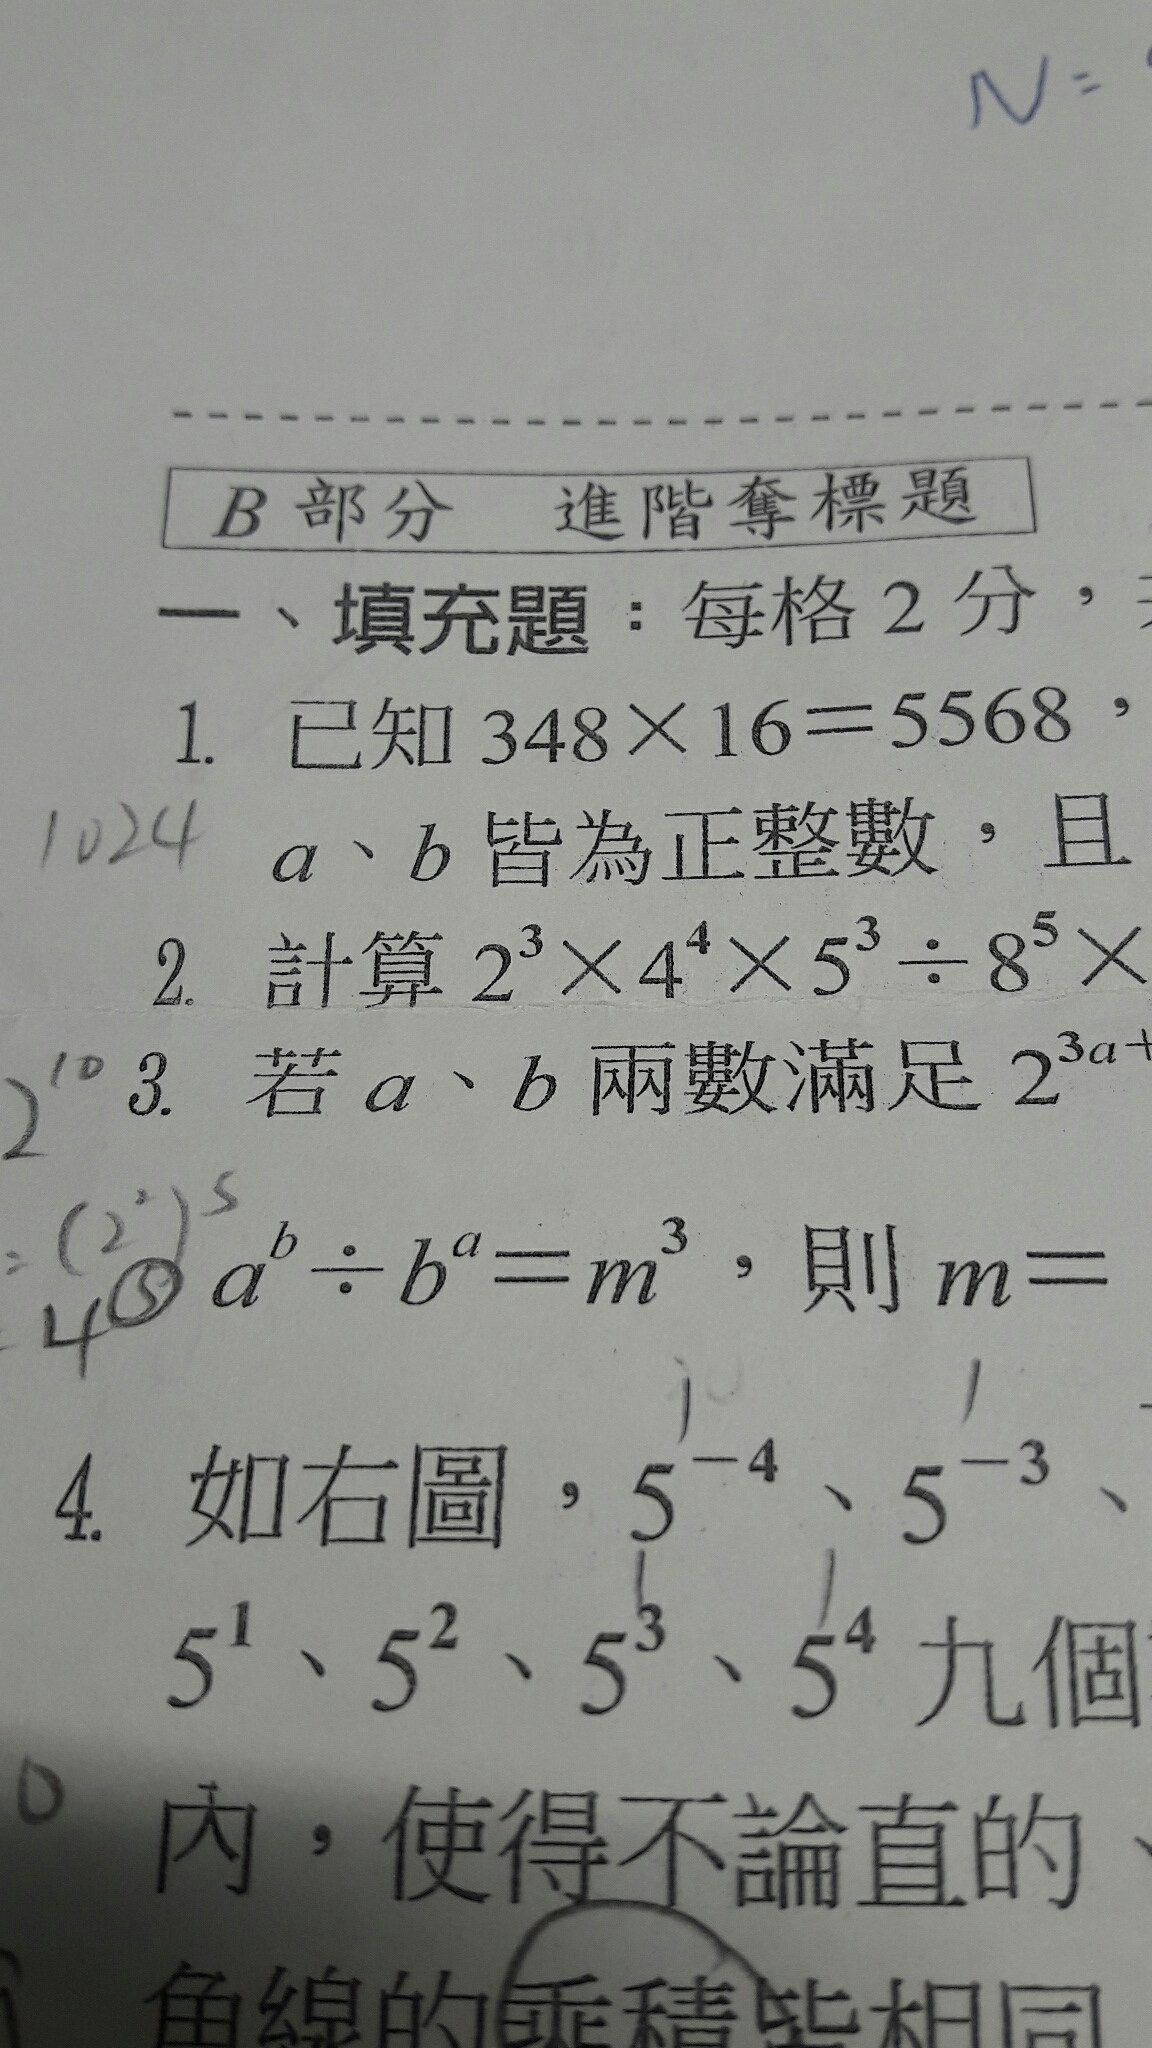 N=
B部分 進階奪標題
一、填充題：每格2分，
1. 已知348×16＝5568，
1024
a、b皆為正整數，且
2. 計算2³×4⁴×5³÷8⁵×
3. 若a、b兩數滿足2³ᵃ⁺
2¹⁰
=(2²)⁵
aᵇ÷bᵃ＝m³，則m＝
4⑤
4. 如右圖，5⁻⁴、5⁻³、
5¹、5²、5³、5⁴九個
0
內，使得不論直的、
角線的乘積皆相同